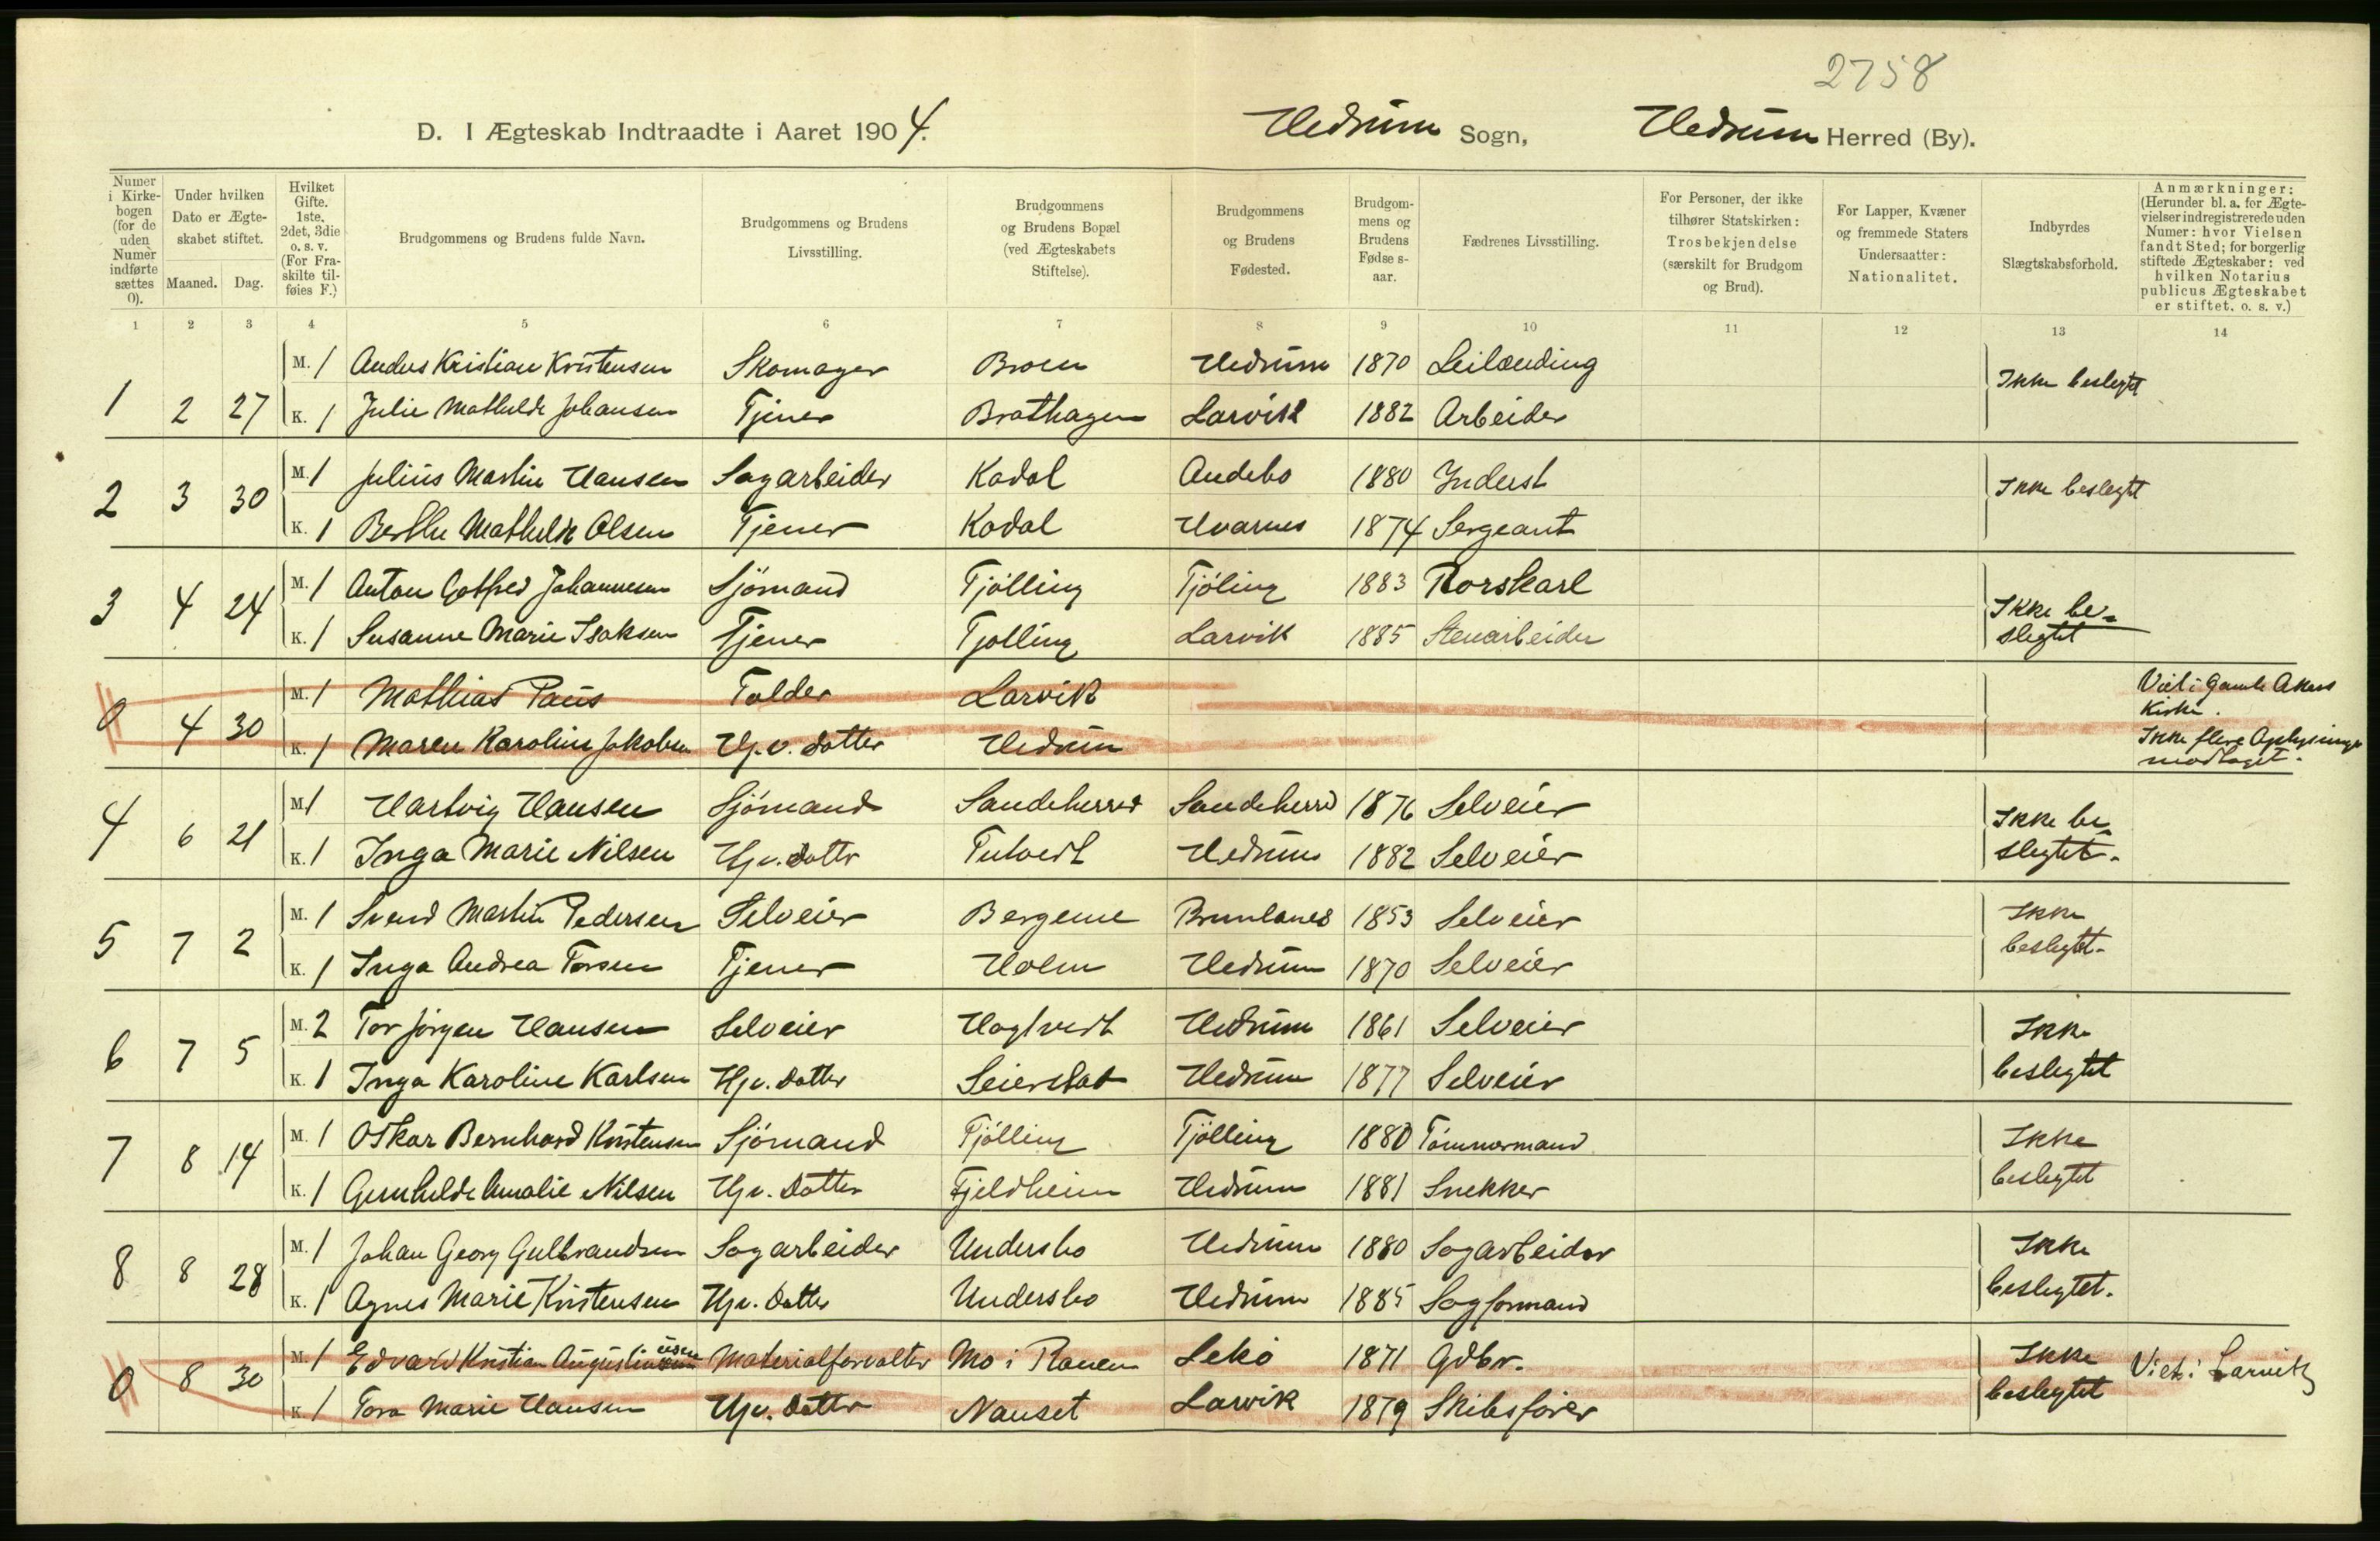 2758
D. I Ægteskab Indtraadte i Aaret 1904. Hedrum Sogn, Hedrum Herred (By).
Numer i Kirke-bogen (for de uden Numer indførte sættes 0).
Under hvilken Dato er Ægte-skabet stiftet.
Maaned. Dag.
Hvilket Gifte. 1ste, 2det, 3die o. s. v. (For Fra-skilte til-føies F.)
Brudgommens og Brudens fulde Navn.
Brudgommens og Brudens Livsstilling.
Brudgommens og Brudens Bopæl (ved Ægteskabets Stiftelse).
Brudgommens og Brudens Fødested.
Brudgom-mens og Brudens Fødse s-aar.
Fædrenes Livsstilling.
For Personer, der ikke tilhører Statskirken: Trosbekjendelse (særskilt for Brudgom og Brud).
For Lapper, Kvæner og fremmede Staters Undersaatter: Nationalitet.
Indbyrdes Slægtskabsforhold.
Anmærkninger: (Herunder bl. a. for Ægte-vielser indregistrerede uden Numer: hvor Vielsen fandt Sted; for borgerlig stiftede Ægteskaber: ved hvilken Notarius publicus Ægteskabet er stiftet. o. s. v.)
1 2 3 4 5 6 7 8 9 10 11 12 13 14
M. 1 Anders Kristian Kristensen Skomager Broen Hedrum 1870 Leilænding
1 2 27 Ikke beslegtet
K. 1 Julie Mathilde Johansen Tjener Brathagen Larvik 1882 Arbeider
M. 1 Julius Martin Hansen Sagarbeider Kodal Andebo 1880 Inderst
2 3 30 Ikke beslegtet
K. 1 Berthe Mathilde Olsen Tjener Kodal Hvarnes 1874 Sergeant
M. 1 Anton Gotfred Johannesen Sjömand Tjölling Tjöling 1883 Rorskarl
3 4 24 Ikke be-
slegtet
K. 1 Susanne Marie Isaksen Tjener Tjølling Larvik 1885 Stenarbeider
M. 1 Mathias Paus Tolder Larvik
0 4 30 Viet i Gamle Akers
Kirke.
K. 1 Maren Karoline Jakobsen Hj. v. Datter Hedrum
Ikke flere Oplysninger
modtaget.
M. 1 Hartvig Hansen Sjömand Sandeherred Sandeherred 1876 Selveier
4 6 21 Ikke be
slegtet.
K. 1 Inga Marie Nilsen Hjv. Datter Tutvedt Hedrum 1882 Selveier
M. 1 Svend Martin Pedersen Selveier Bergene Brunlanes 1853 Selveier
5 7 2 Ikke
beslegtet.
K. 1 Inga Andrea Torsen Tjener Holm Hedrum 1870 Selveier
M. 2 Tor Jörgen Hansen Selveier Hagtvedt Hedrum 1861 Selveier
6 7 5 Ikke
beslegtet
K. 1 Inga Karoline Karlsen Hjv. Datter Seierstad Hedrum 1877 Selveier
M. 1 Oskar Bernhard Kristensen Sjömand Tjölling Tjölling 1880 Tömmermand
7 8 14 Ikke
beslegtet
K. 1 Gunhilde Amalie Nilsen Hjv. Datter Fjeldheim Hedrum 1881 Snekker
M. 1 Johan Georg Gulbrandsen Sagarbeider Undersbo Hedrum 1880 Sagarbeider
8 8 28 Ikke
beslegtet.
K. 1 Agnes Marie Kristensen Hjv. Datter Undersbo Hedrum 1885 Sagformand
M. 1 Edvard Kristian Augustinusen Materialforvalter Mo i Ranen Lekö 1871 Gdbr.
0 8 30 Ikke
beslegtet Viet i Larvik
K 1 Tora Marie Hansen Hjv. Datter Nanset Larvik 1879 Skibsförer